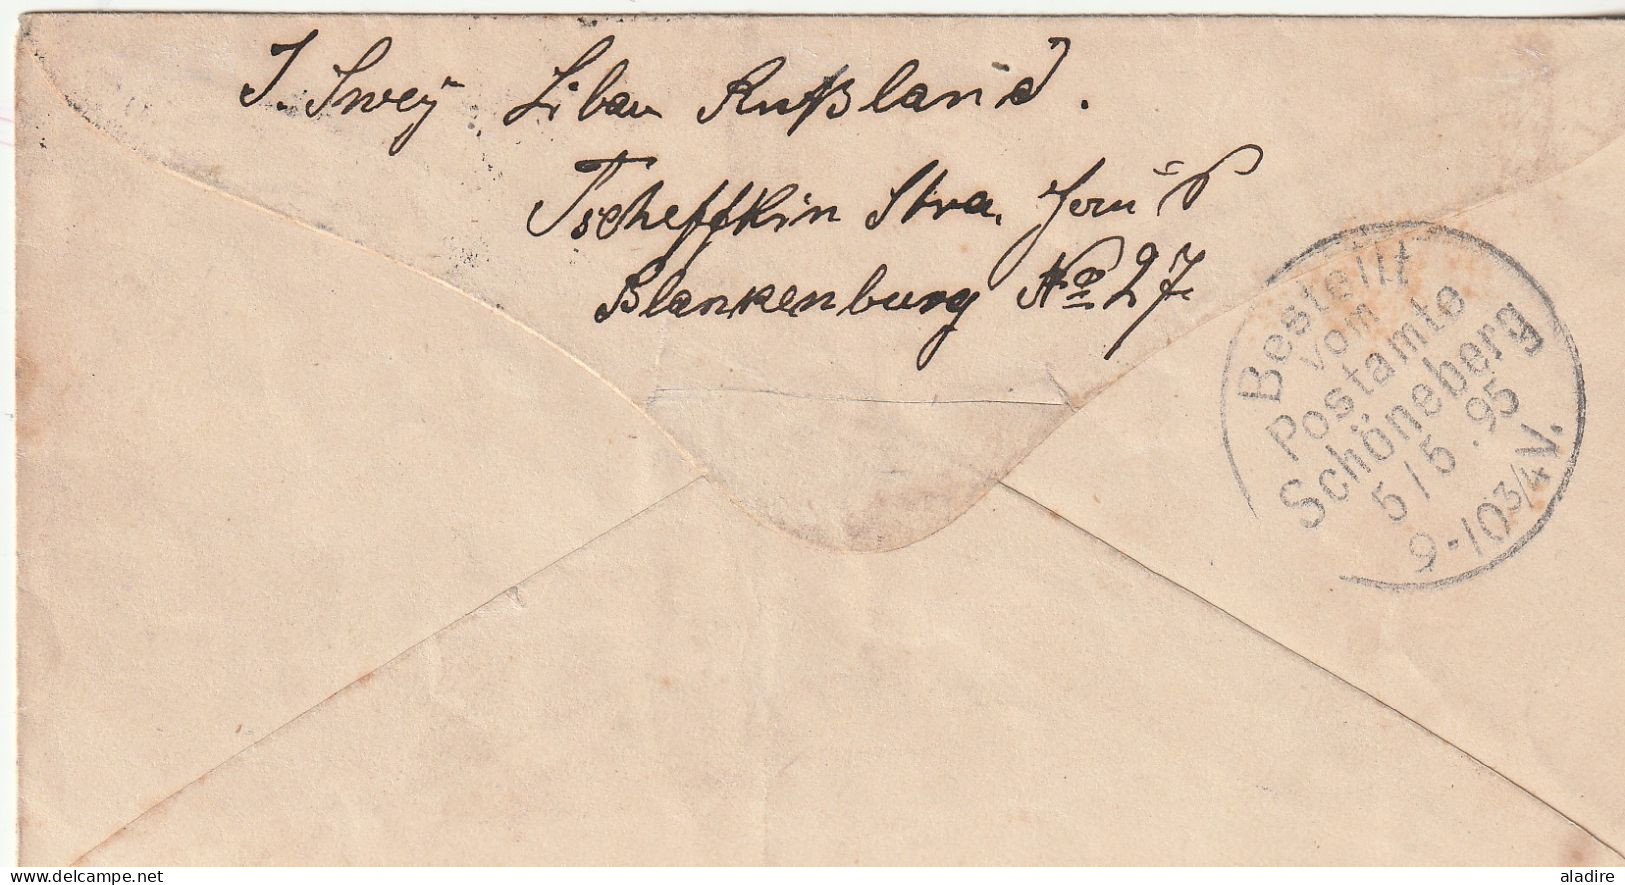 J. Swey Libau Rußland.
Tscheffkin Stra.
Blankenburg No 27.
Bestellt
vom
Postamte
Schöneberg
5/5.95
9-10¾V.
delcampe.net
aladire